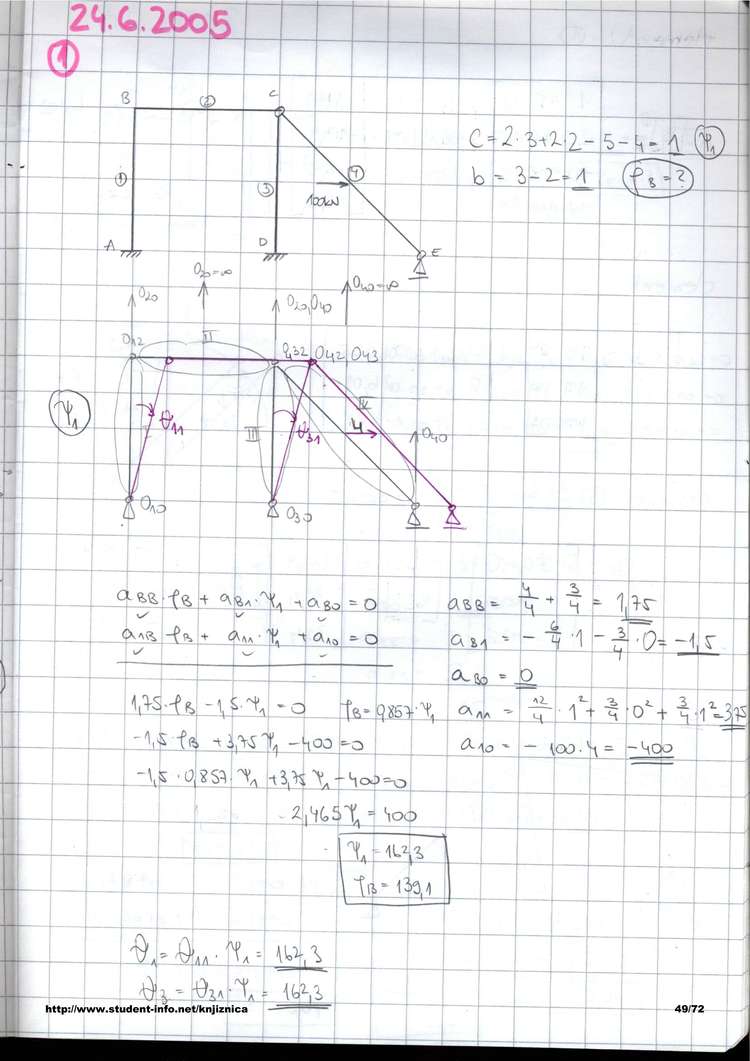 24.6.2005
1
B 2 C
C = 2·3+2·2 − 5 − 4 = 1 Ψ1
b = 3 − 2 = 1 φB = ?
1 3 4
100kN
A D E
O20 O20=∞ O20,O40 O40=∞
O12 II O32 O42 O43
Ψ1 ϑ11 III ϑ31 4 IV O40
O10 O30
aBB·φB + aB1·Ψ1 + aB0 = 0
a1B φB + a11·Ψ1 + a10 = 0
aBB = 4/4 + 3/4 = 1,75
aB1 = − 6/4·1 − 3/4·0 = −1,5
aB0 = 0
a11 = 12/4·1² + 3/4·0² + 3/4·1² = 3,75
a10 = − 100·4 = −400
1,75·φB − 1,5·Ψ1 = 0 φB = 0,857·Ψ1
−1,5·φB + 3,75Ψ1 − 400 = 0
−1,5·0,857·Ψ1 + 3,75Ψ1 − 400 = 0
2,465Ψ1 = 400
Ψ1 = 162,3
φB = 139,1
ϑ1 = ϑ11·Ψ1 = 162,3
ϑ3 = ϑ31·Ψ1 = 162,3
http://www.student-info.net/knjiznica 49/72